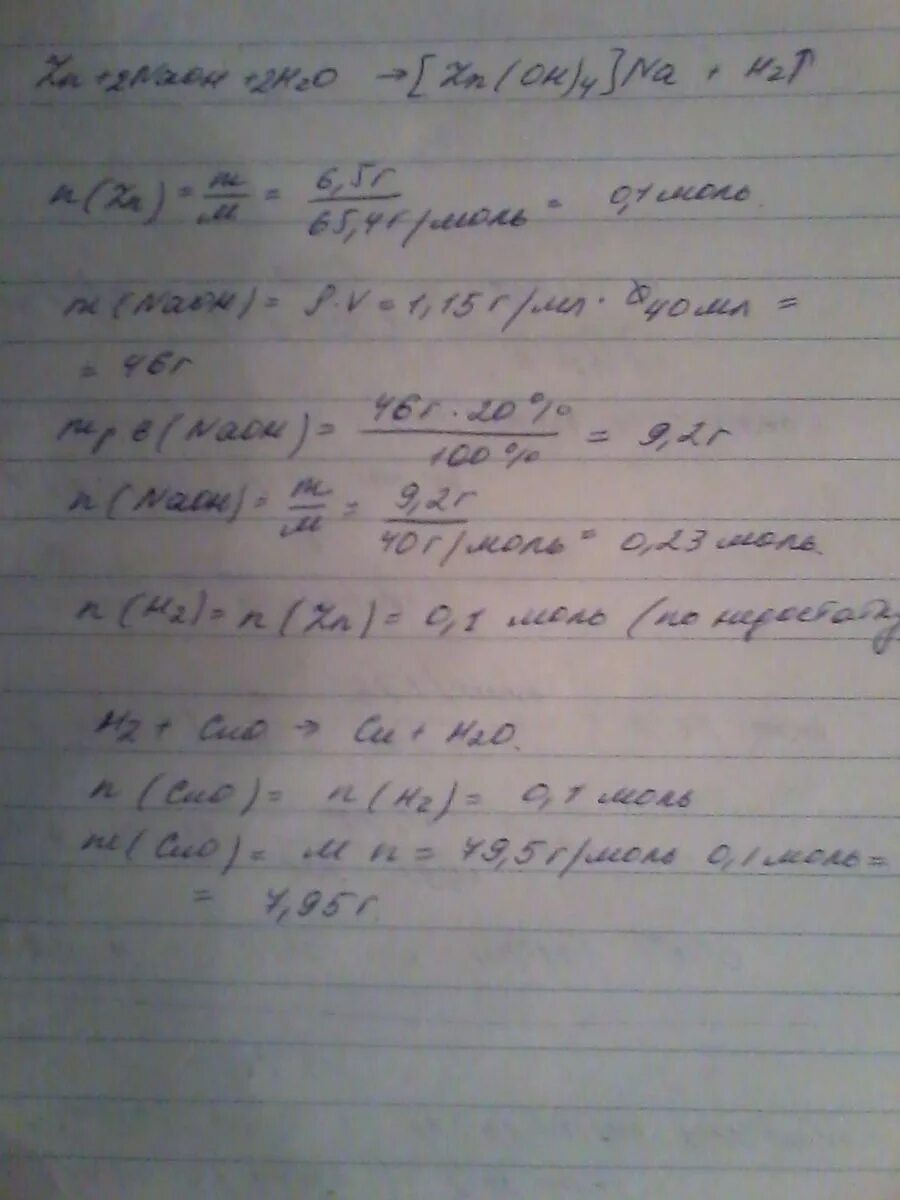 Zn + 2NaOH + 2H2O → [Zn(OH)4]Na + H2↑
n(Zn) = m/M = 6,5г/65,4г/моль = 0,1 моль.
m(NaOH) = ρ·V = 1,15г/мл · 40мл =
= 46г
mр.в(NaOH) = 46г · 20%/100% = 9,2г
n(NaOH) = m/M = 9,2г/40г/моль = 0,23 моль.
n(H2) = n(Zn) = 0,1 моль (по недостатку
H2 + CuO → Cu + H2O.
n(CuO) = n(H2) = 0,1 моль
m(CuO) = M n = 79,5г/моль 0,1моль =
= 7,95г.